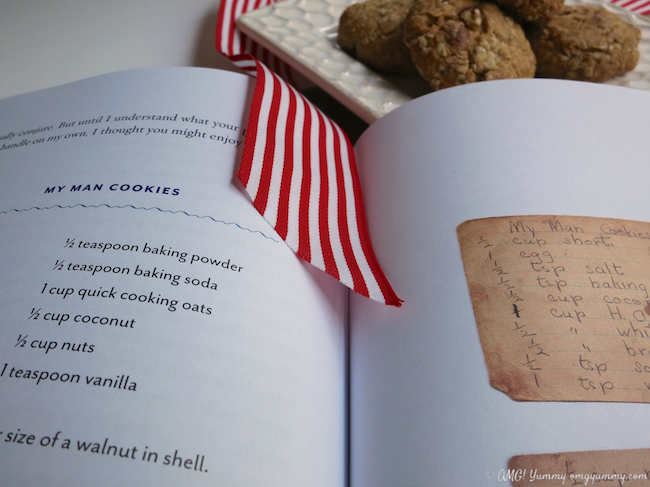 conjure. But until I understand what your
handle on my own, I thought you might enjoy
MY MAN COOKIES
½ teaspoon baking powder
½ teaspoon baking soda
1 cup quick cooking oats
½ cup coconut
½ cup nuts
1 teaspoon vanilla
size of a walnut in shell.
My Man Cookies
½ cup short.
1 egg
½ tsp salt
½ tsp baking
½ cup coco
1 cup H.O
½ " whi
½ " br
½ tsp so
1 tsp
© OMG! Yummy omgyummy.com